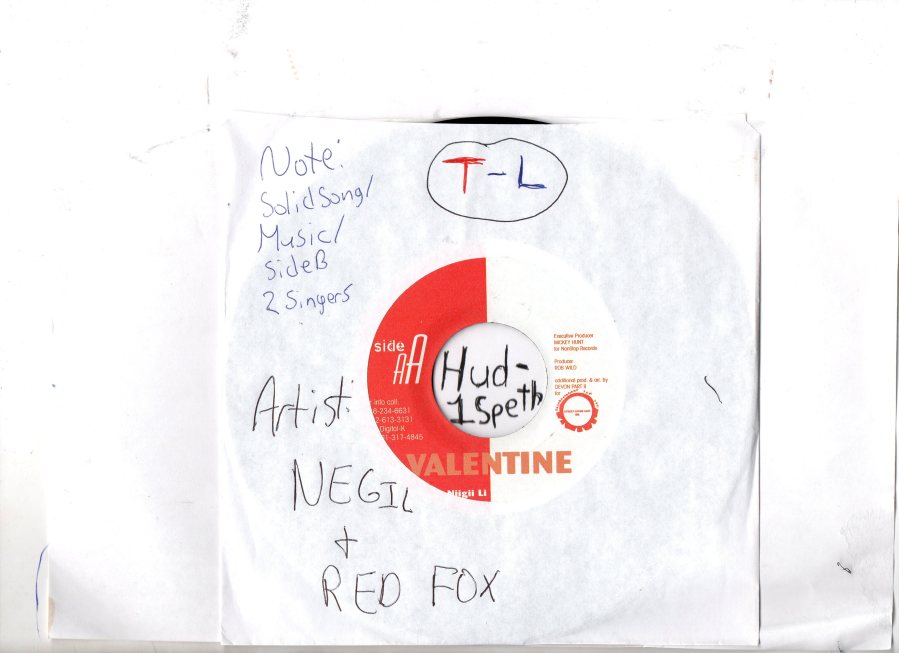 Note:
Solid Song/
Music/
side B
2 Singers
T-L
side AA
Hud-
1Speth
Executive Producer
MICKEY HUNT
for NonStop Records
Producer
ROB WILD
additional prod. & arr. by
DEVON PART II
for
info call:
8-234-6631
2-613-3131
Digital-K
51-317-4845
VALENTINE
Niigii Li
Artist:
NEGIL
+
RED FOX